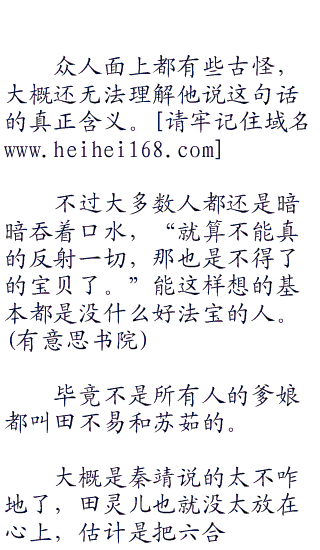 众人面上都有些古怪，
大概还无法理解他说这句话
的真正含义。[请牢记住域名
www.heihei168.com]
不过大多数人都还是暗
暗吞着口水，“就算不能真
的反射一切，那也是不得了
的宝贝了。”能这样想的基
本都是没什么好法宝的人。
(有意思书院)
毕竟不是所有人的爹娘
都叫田不易和苏茹的。
大概是秦靖说的太不咋
地了，田灵儿也就没太放在
心上，估计是把六合